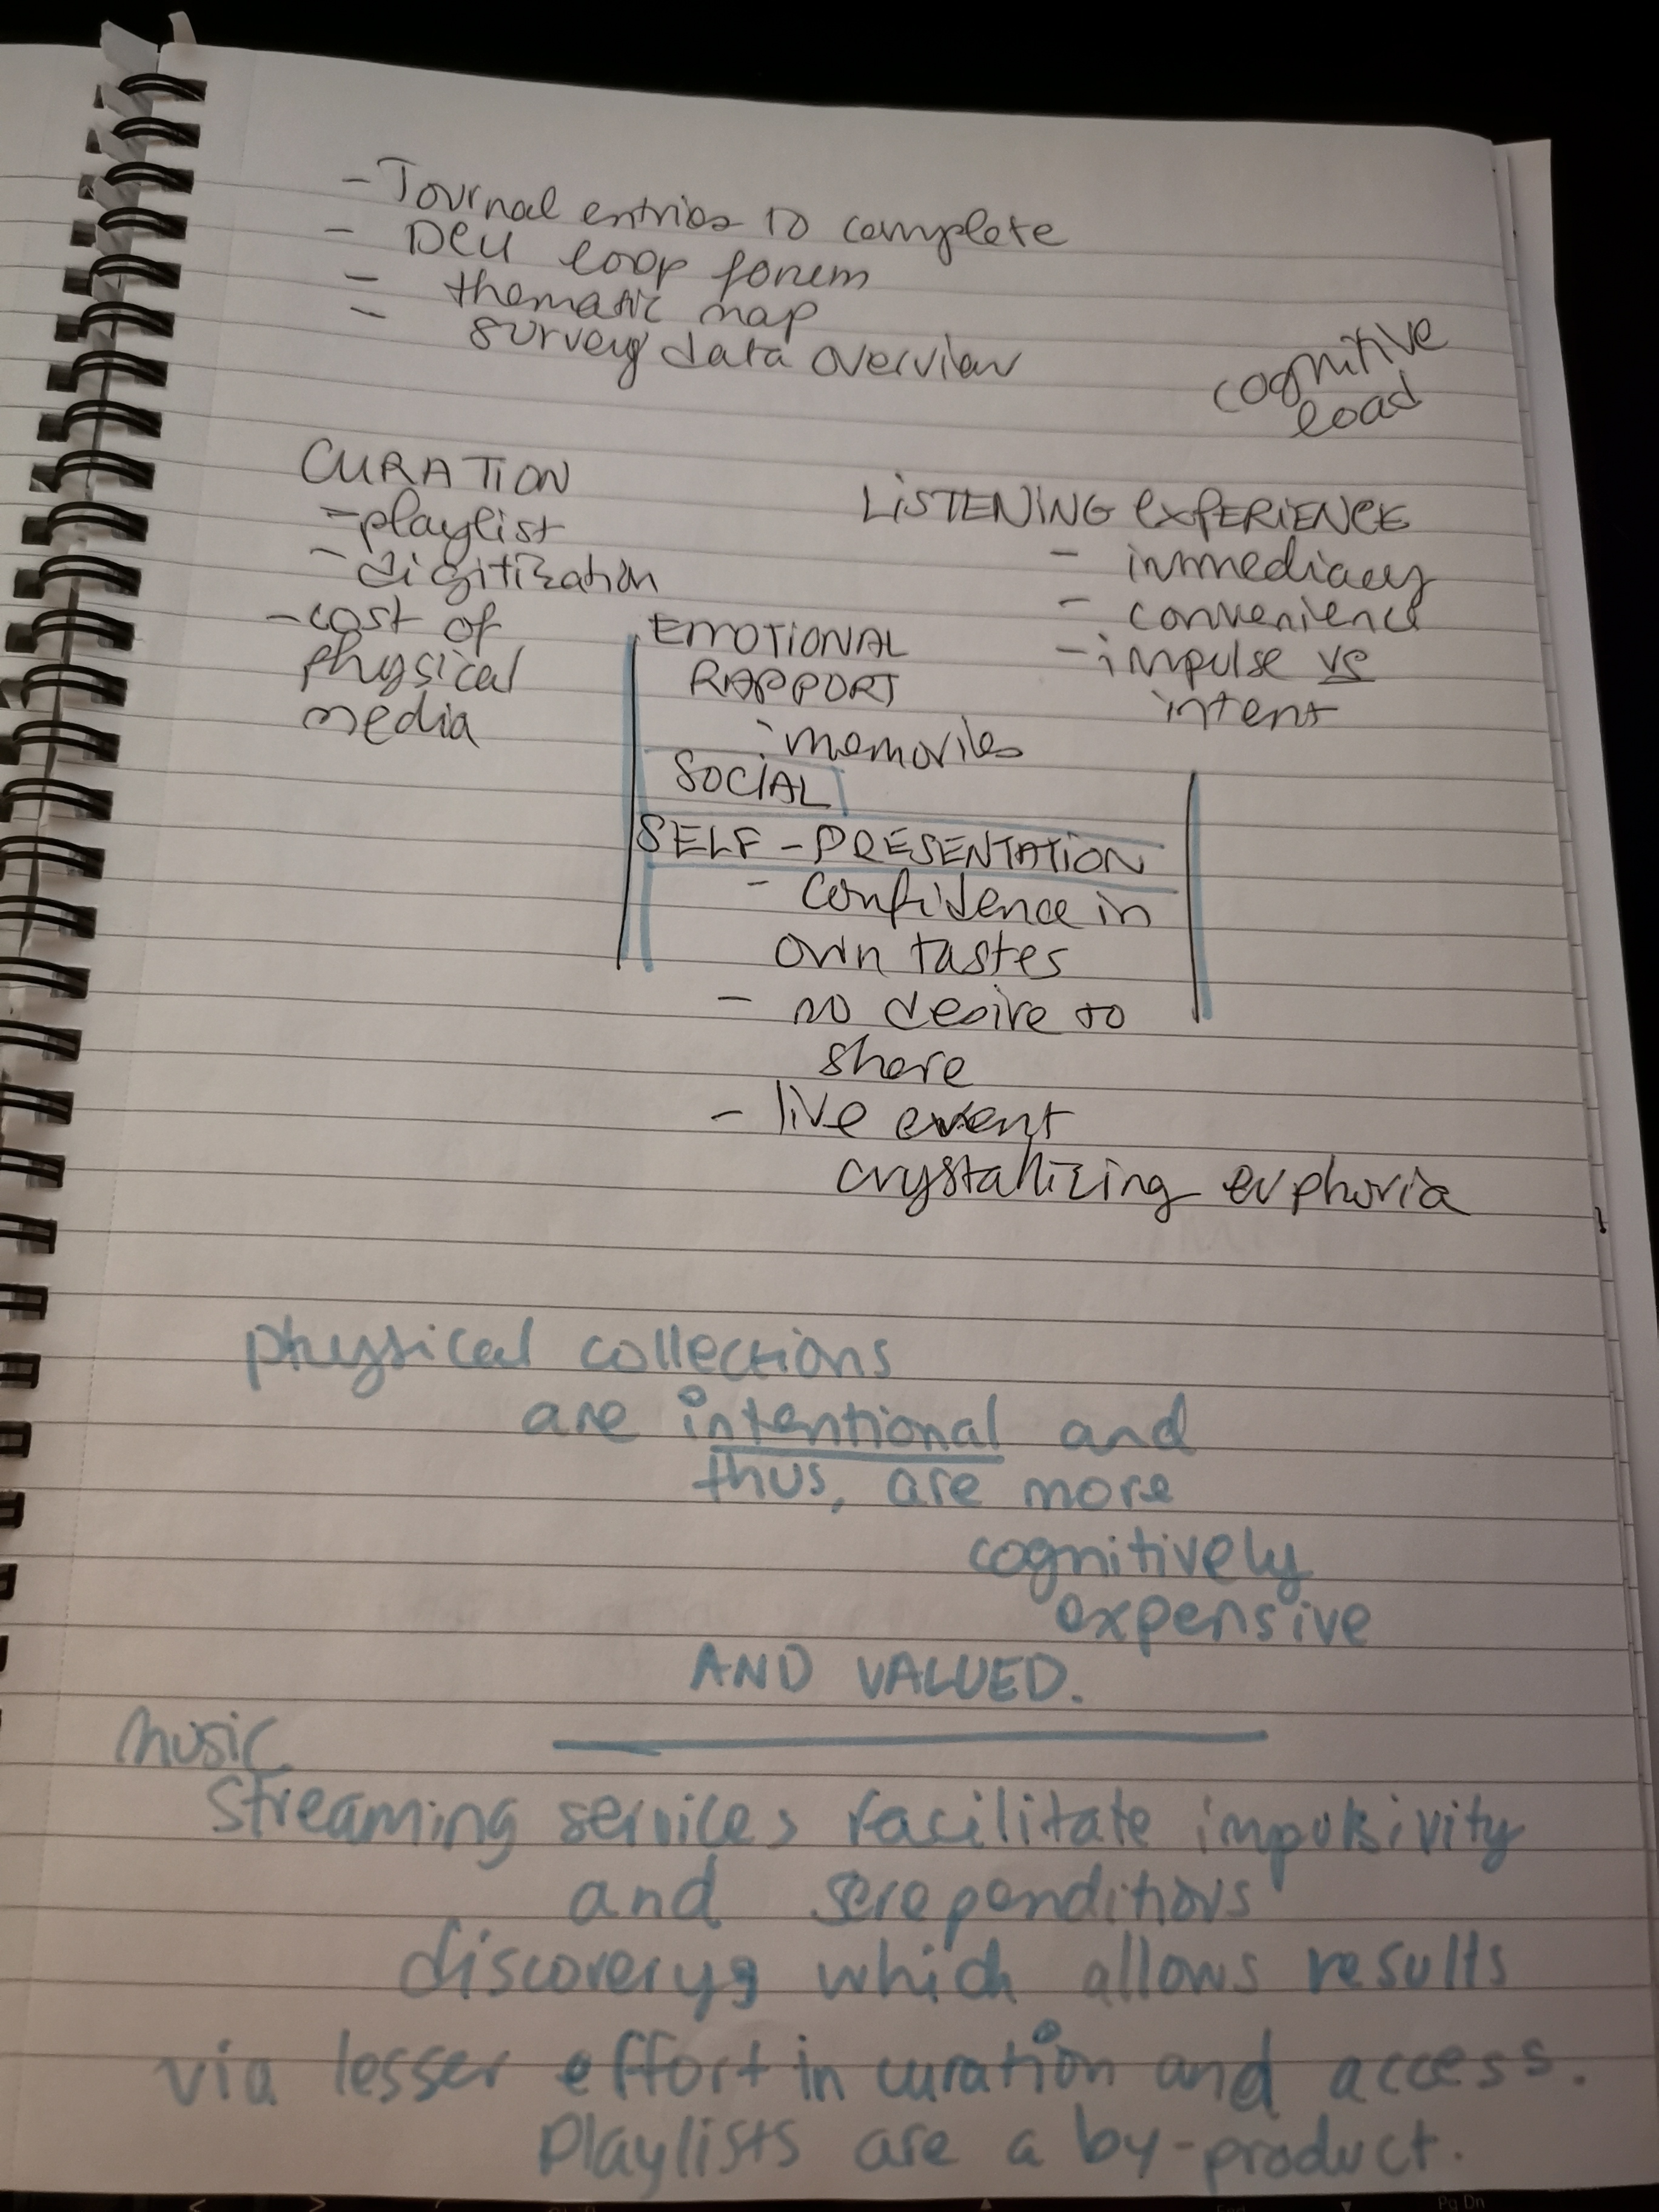 - Journal entries to complete
- DCU loop forum
- thematic map
- survey data overview
cognitive
load
CURATION
- playlist
- digitization
- cost of
physical
media
LISTENING EXPERIENCE
- immediacy
- convenience
- impulse vs
intent
EMOTIONAL
RAPPORT
: memories
SOCIAL
SELF-PRESENTATION
- confidence in
own tastes
- no desire to
share
- live event
crystallizing euphoria
physical collections
are intentional and
thus, are more
cognitively
expensive
AND VALUED.
music
streaming services facilitate impulsivity
and serependitiovs
discovery, which allows results
via lesser effort in curation and access.
Playlists are a by-product.
Pg Dn